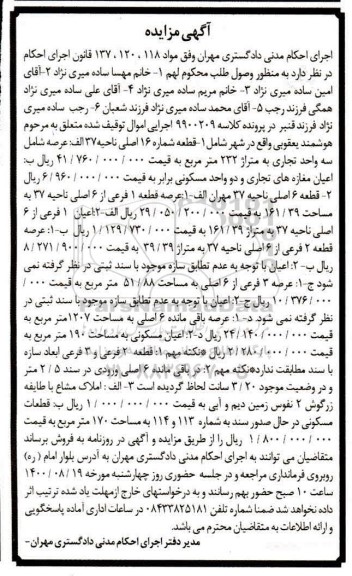 آگهی مزایده
اجرای احکام مدنی دادگستری مهران وفق مواد ۱۱۸ ، ۱۲۰ ، ۱۳۷ قانون اجرای احکام
در نظر دارد به منظور وصول طلب محکوم لهم ۱- خانم مهسا ساده میری نژاد ۲-آقای
امین ساده میری نژاد ۳- خانم مریم ساده میری نژاد ۴- آقای علی ساده میری نژاد
همگی فرزند رجب ۵- آقای محمد ساده میری نژاد فرزند شعبان ۶- رجب ساده میری
نژاد فرزند قنبر در پرونده کلاسه ۹۹۰۰۲۰۹ اجرایی اموال توقیف شده متعلق به مرحوم
هوشمند یعقوبی واقع در شهر شامل ۱-قطعه شماره ۱۶ اصلی ناحیه۳۷ الف: عرصه شامل
سه واحد تجاری به متراژ ۲۳۲ متر مربع به قیمت ۴۱/۷۶۰/۰۰۰/۰۰۰ ریال ب:
اعیان مغازه های تجاری و دو واحد مسکونی برابر به قیمت ۶/۹۶۰/۰۰۰/۰۰۰ ریال
۲- قطعه ۶ اصلی ناحیه ۳۷ مهران الف-۱:عرصه قطعه ۱ فرعی از ۶ اصلی ناحیه ۳۷ به
مساحت ۱۶۱/۳۹ به قیمت ۲۹/۰۵۰/۲۰۰/۰۰۰ ریال الف-۲:اعیان ۱ فرعی از ۶
اصلی ناحیه ۳۷ به متراژ ۱۶۱/۳۹ به قیمت ۱/۱۲۹/۷۳۰/۰۰۰ ریال ب-۱: عرصه
قطعه ۲ فرعی از ۶ اصلی ناحیه ۳۷ به متراژ ۳۹/۳۹ به قیمت ۸/۲۷۱/۹۰۰/۰۰۰
ریال ب-۲: اعیان با توجه به عدم تطابق سازه موجود با سند ثبتی در نظر گرفته نمی
شود ج-۱: عرصه ۳ فرعی از ۶ اصلی به مساحت ۵۱/۸۸ متر مربع به قیمت
۱۰/۳۷۶/۰۰۰/۰۰۰ ریال ج-۲: اعیان با توجه به عدم تطابق سازه موجود با سند ثبتی در
نظر گرفته نمی شود. د-۱: عرصه باقی مانده ۶ اصلی به مساحت ۱۲۰۷متر مربع به
قیمت ۲۴/۱۴۰/۰۰۰/۰۰۰ ریال د-۲: اعیان مسکونی به مساحت ۱۹۰ متر مربع به
قیمت ۲/۲۸۰/۰۰۰/۰۰۰ ریال *نکته مهم ۱: قطعه ۲ فرعی و ۳ فرعی ابعاد سازه
با سند مطابقت ندارد*نکته مهم ۲: در باقی مانده ۶ اصلی ورودی در سند ۲/۵ متر
و در وضعیت موجود ۳/۲۰ سانت لحاظ گردیده است ۳- الف : املاک مشاع با طایفه
زرگوش ۲ نفوس زمین دیم و آبی به قیمت ۱/۰۰۰/۰۰۰/۰۰۰ ریال ب: قطعات
مسکونی در حال صدور سند به شماره ۱۱۳ و ۱۱۴ به مساحت ۱۷۰ متر مربع به قیمت
۱/۸۰۰/۰۰۰/۰۰۰ ریال را از طریق مزایده و آگهی در روزنامه به فروش برساند
متقاضیان می توانند به اجرای احکام مدنی دادگستری مهران به آدرس بلوار امام (ره)
روبروی فرمانداری مراجعه و در جلسه حضوری روز چهارشنبه مورخه ۱۴۰۰/۰۸/۱۹
ساعت ۱۰ صبح حضور بهم رسانند و به درخواستهای خارج ازمهلت یاد شده ترتیب اثر
داده نخواهد شد ضمنا شماره تلفن ۰۸۴۳۳۸۲۵۱۸۱ در ساعات اداری آماده پاسخگویی
و ارائه اطلاعات به متقاضیان محترم می باشد.
مدیر دفتر اجرای احکام مدنی دادگستری مهران-